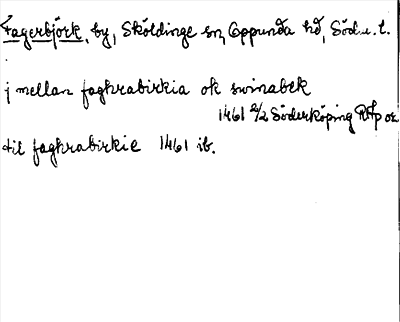 Fagerbjörk, by, Sköldinge sn, Oppunda hd, Söd.u.l.
j mellan faghrabirkia ok swinabek
1461 2/2 Söderköping RAp or
til faghrabirkie 1461 ib.